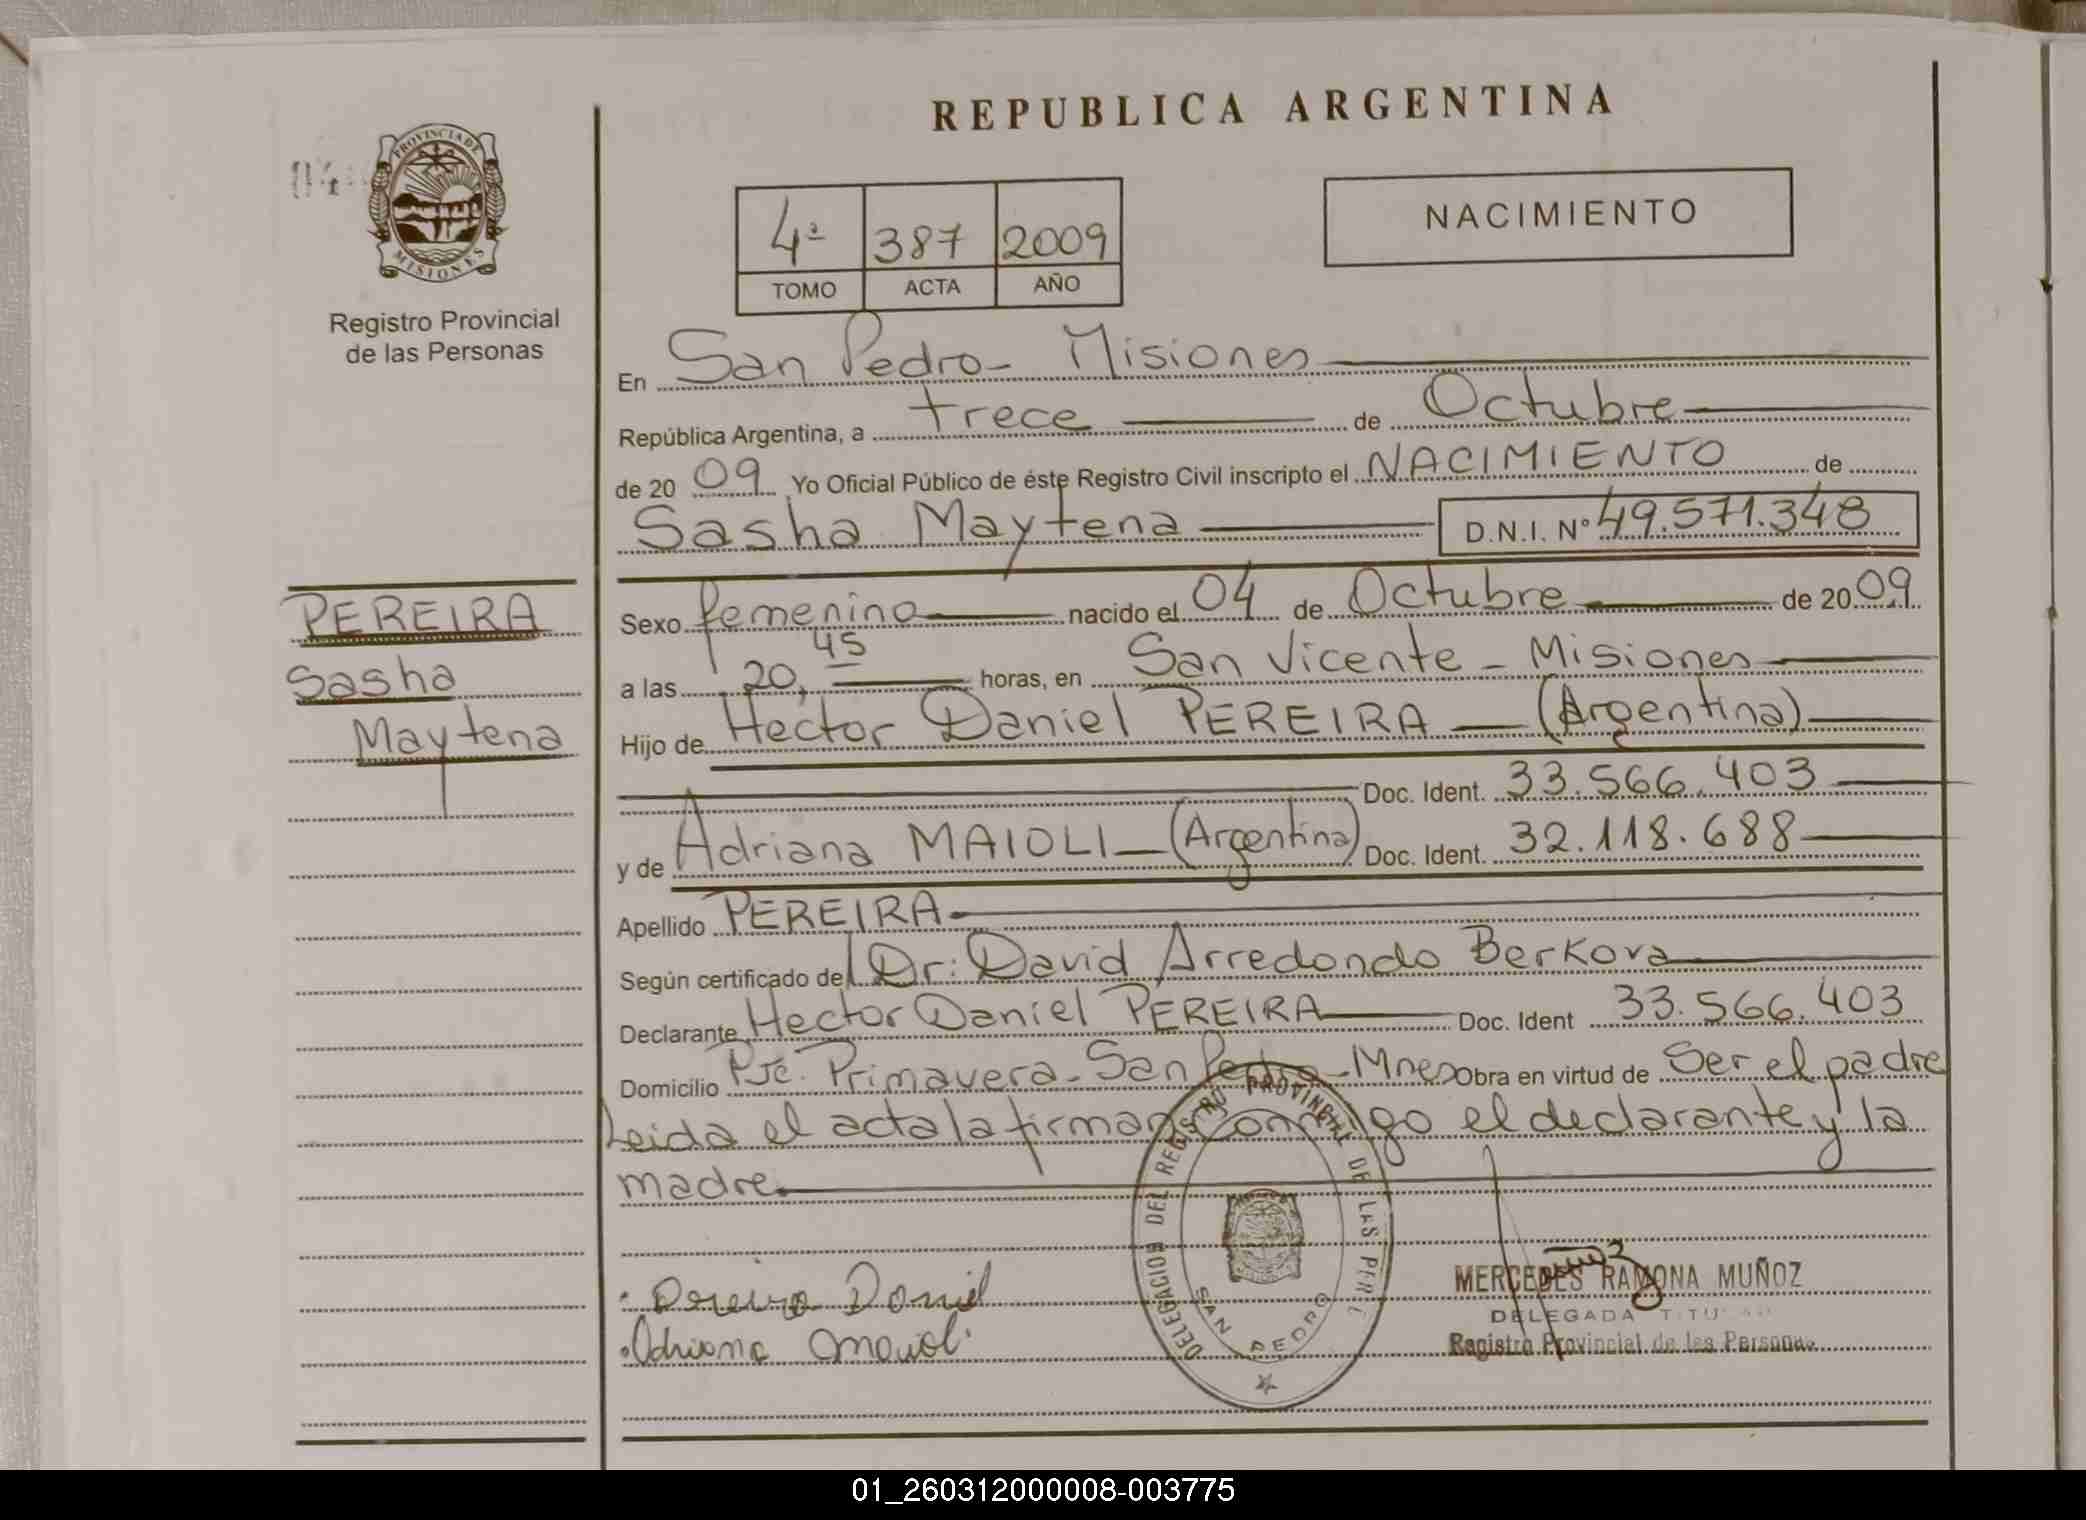 REPUBLICA ARGENTINA
PROVINCIA DE MISIONES
Registro Provincial
de las Personas
4ª 387 2009
TOMO ACTA AÑO
NACIMIENTO
En San Pedro - Misiones
República Argentina, a trece de Octubre
de 20 09 Yo Oficial Público de éste Registro Civil inscripto el NACIMIENTO de
Sasha Maytena D.N.I. Nº 49.571.348
PEREIRA
Sasha
Maytena
Sexo femenino nacido el 04 de Octubre de 20 09
a las 20,45 horas, en San Vicente - Misiones
Hijo de Hector Daniel PEREIRA (Argentina)
Doc. Ident. 33.566.403
y de Adriana MAIOLI (Argentina) Doc. Ident. 32.118.688
Apellido PEREIRA
Según certificado del Dr: David Arredondo Berkova
Declarante Hector Daniel PEREIRA Doc. Ident 33.566.403
Domicilio Pje. Primavera - San Pedro - Mnes Obra en virtud de Ser el padre
Leida el acta la firman conmigo el declarante y la
madre
DELEGACION DEL REGISTRO PROVINCIAL DE LAS PERS
SAN PEDRO
Pereira Daniel
Adriana Maioli
MERCEDES RAMONA MUÑOZ
DELEGADA TITULAR
Registro Provincial de las Personas
01_260312000008-003775